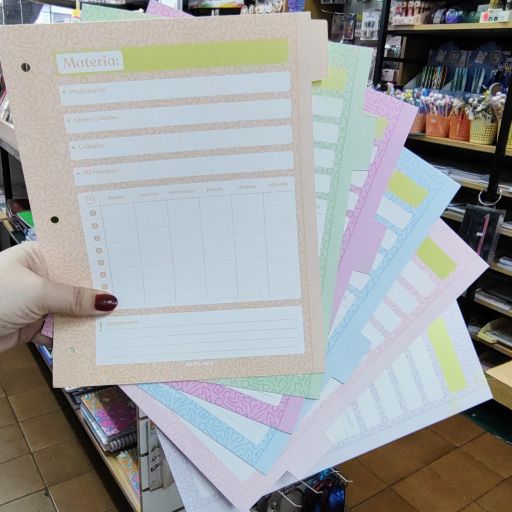 Materia:
Profesor/a:
Curso y turno:
Colegio:
Mi Nombre:
lunes martes miércoles jueves viernes sábado
Importante: